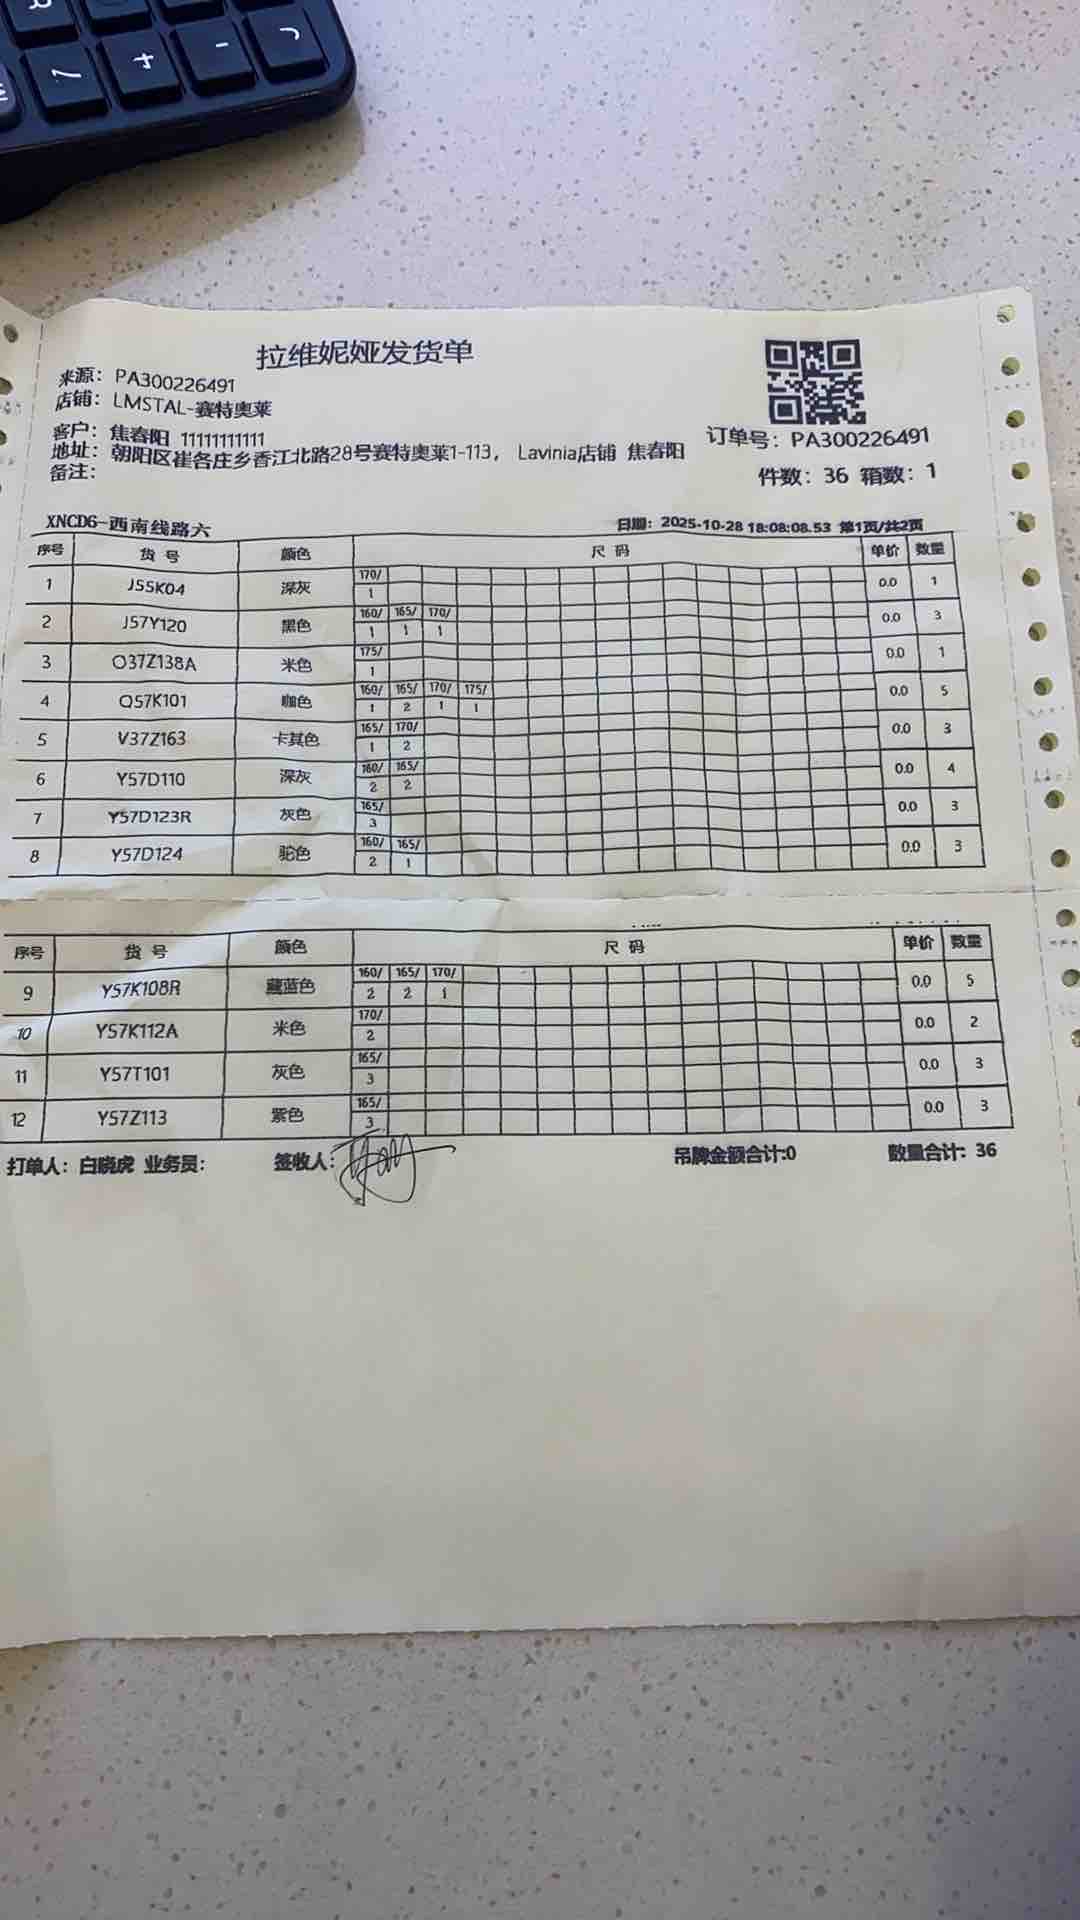 拉维妮娅发货单
来源：PA300226491
店铺：LMSTAL-赛特奥莱
客户：焦春阳 11111111111
地址：朝阳区崔各庄乡香江北路28号赛特奥莱1-113， Lavinia店铺 焦春阳
备注：
订单号：PA300226491
件数：36 箱数：1
XNCD6-西南线路六
日期：2025-10-28 18:08:08.53 第1页/共2页
序号 货号 颜色 尺码 单价 数量
170/
1 J55K04 深灰 1 0.0 1
160/ 165/ 170/
2 J57Y120 黑色 1 1 1 0.0 3
175/
3 O37Z138A 米色 1 0.0 1
160/ 165/ 170/ 175/
4 Q57K101 咖色 1 2 1 1 0.0 5
165/ 170/
5 V37Z163 卡其色 1 2 0.0 3
160/ 165/
6 Y57D110 深灰 2 2 0.0 4
165/
7 Y57D123R 灰色 3 0.0 3
160/ 165/
8 Y57D124 驼色 2 1 0.0 3
序号 货号 颜色 尺码 单价 数量
160/ 165/ 170/
9 Y57K108R 藏蓝色 2 2 1 0.0 5
170/
10 Y57K112A 米色 2 0.0 2
165/
11 Y57T101 灰色 3 0.0 3
165/
12 Y57Z113 紫色 3 0.0 3
打单人：白晓虎 业务员： 签收人： 吊牌金额合计:0 数量合计: 36